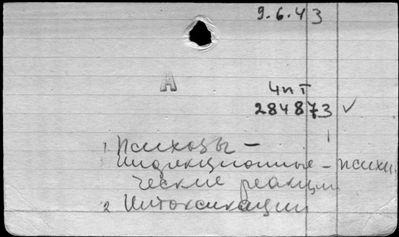 9.6.43
A
4п I
284873 ✓
1 Психозы –
инфекционные – психи
ческие реакции
2 Интоксикации